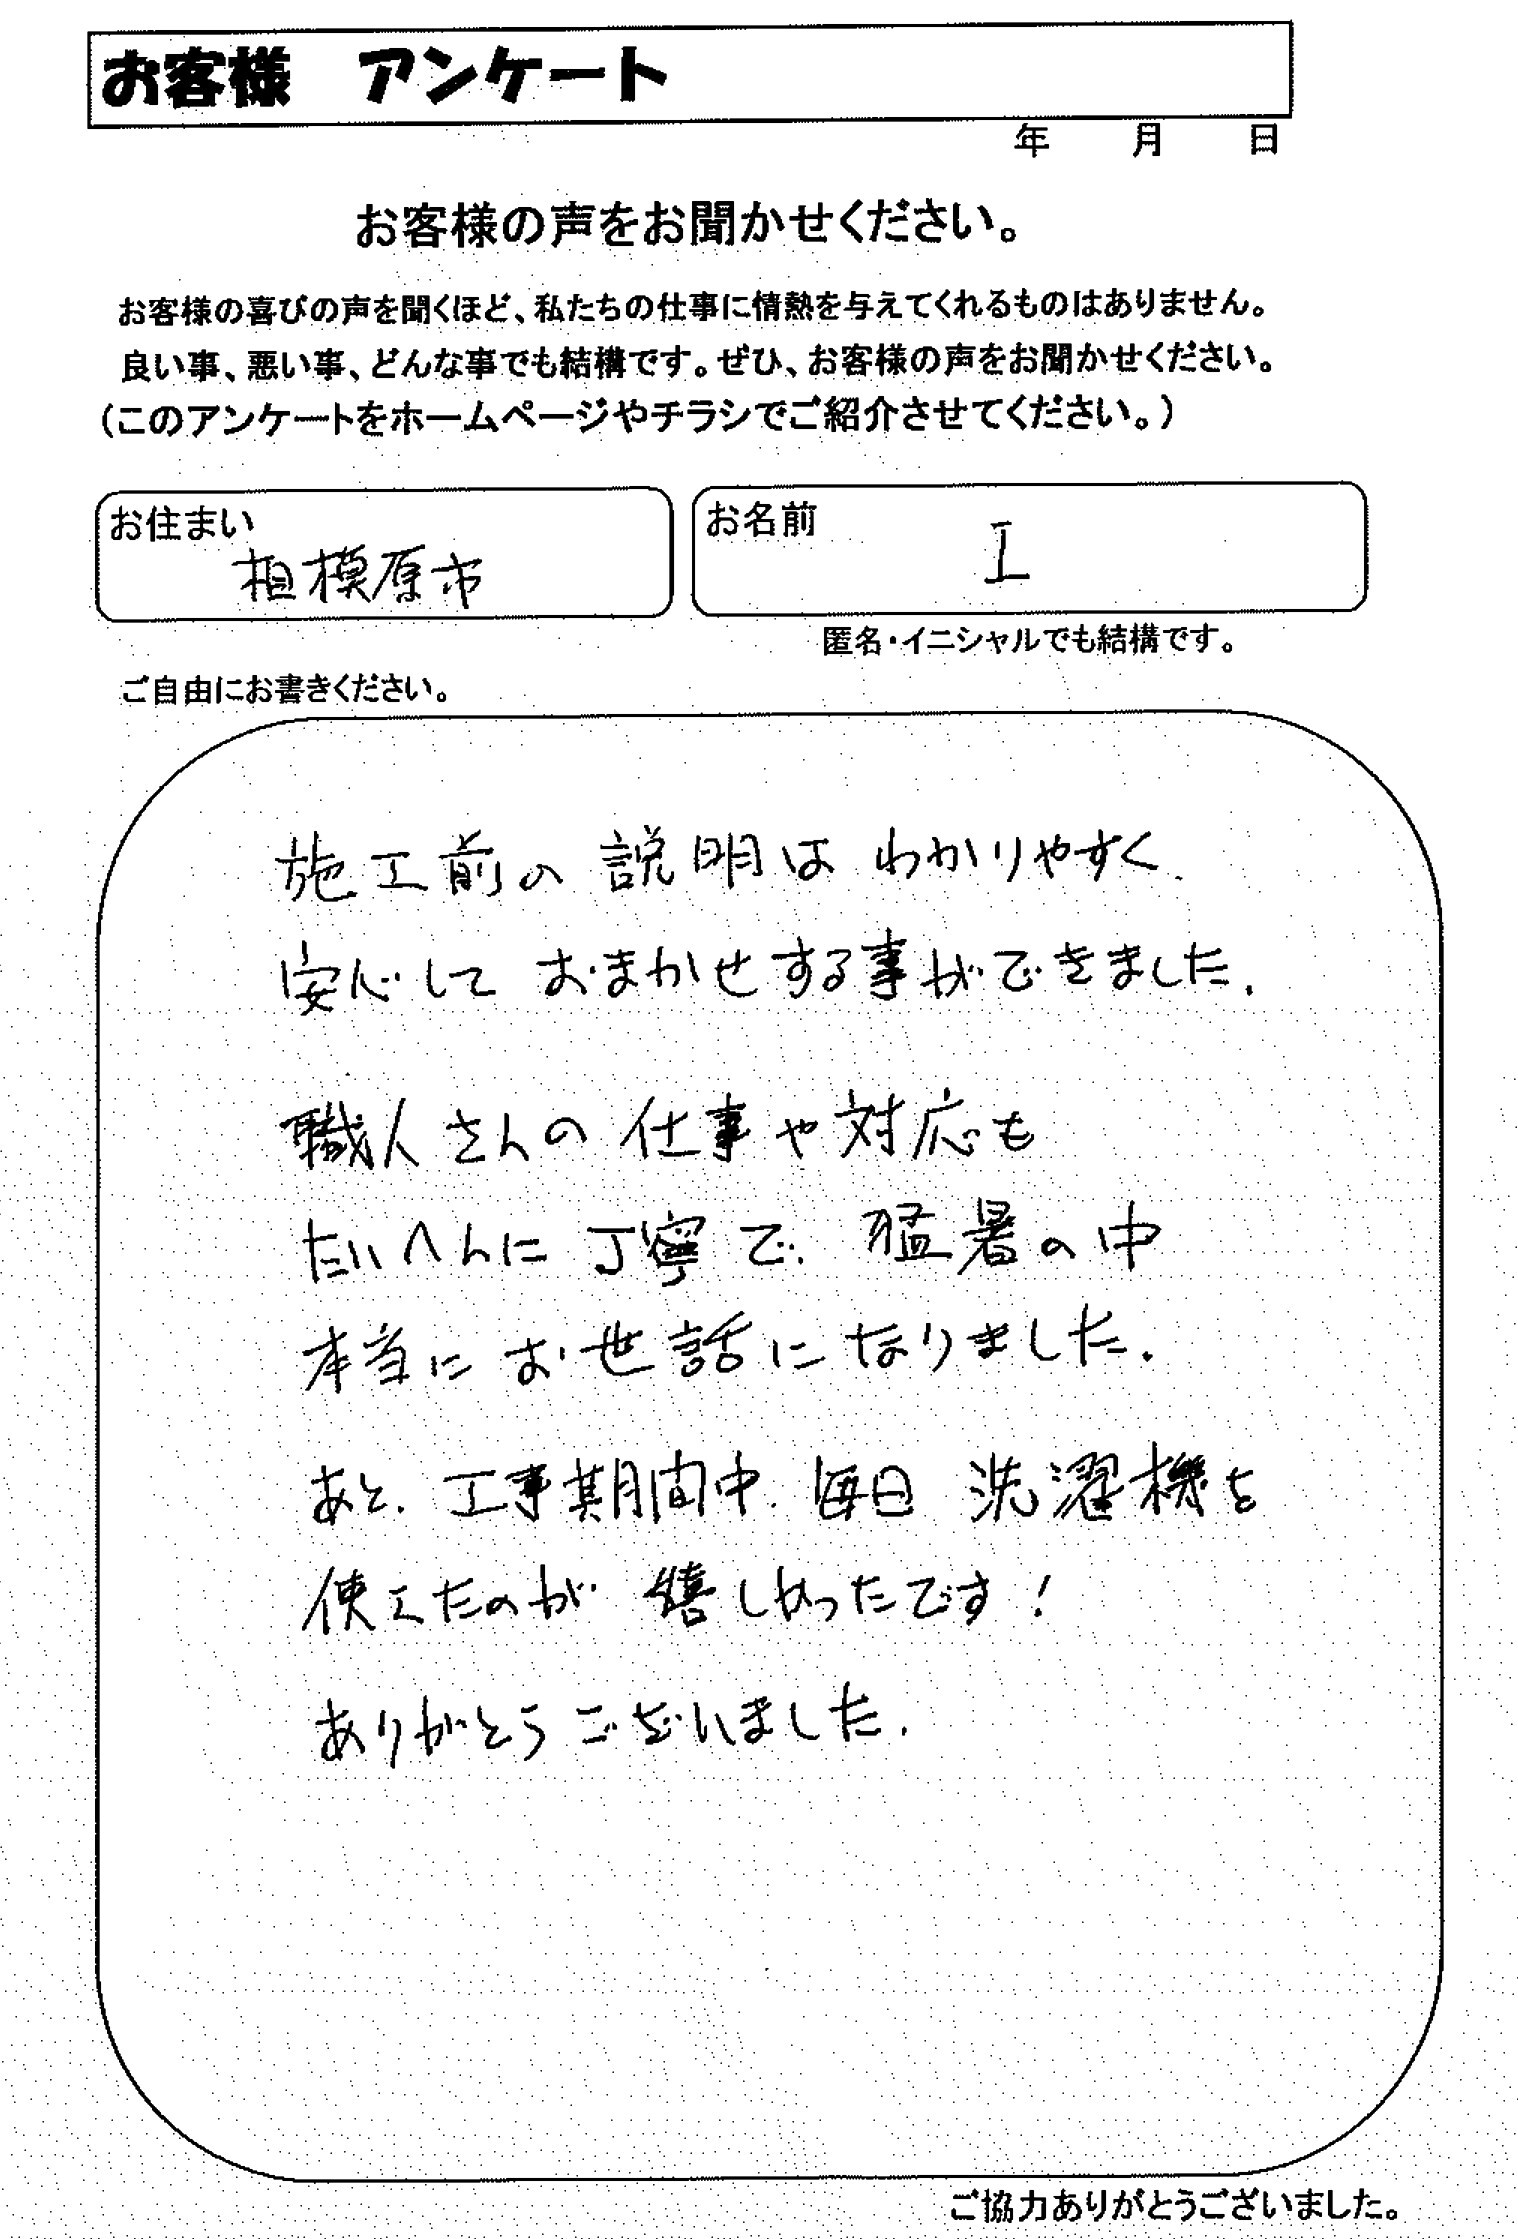 お客様　アンケート
年　月　日
お客様の声をお聞かせください。
お客様の喜びの声を聞くほど、私たちの仕事に情熱を与えてくれるものはありません。
良い事、悪い事、どんな事でも結構です。ぜひ、お客様の声をお聞かせください。
（このアンケートをホームページやチラシでご紹介させてください。）
お住まい
相模原市
お名前
I
匿名・イニシャルでも結構です。
ご自由にお書きください。
施工前の説明はわかりやすく、
安心しておまかせする事ができました。
職人さんの仕事や対応も
たいへんに丁寧で、猛暑の中
本当にお世話になりました。
あと、工事期間中、毎日洗濯機を
使えたのが嬉しかったです！
ありがとうございました。
ご協力ありがとうございました。